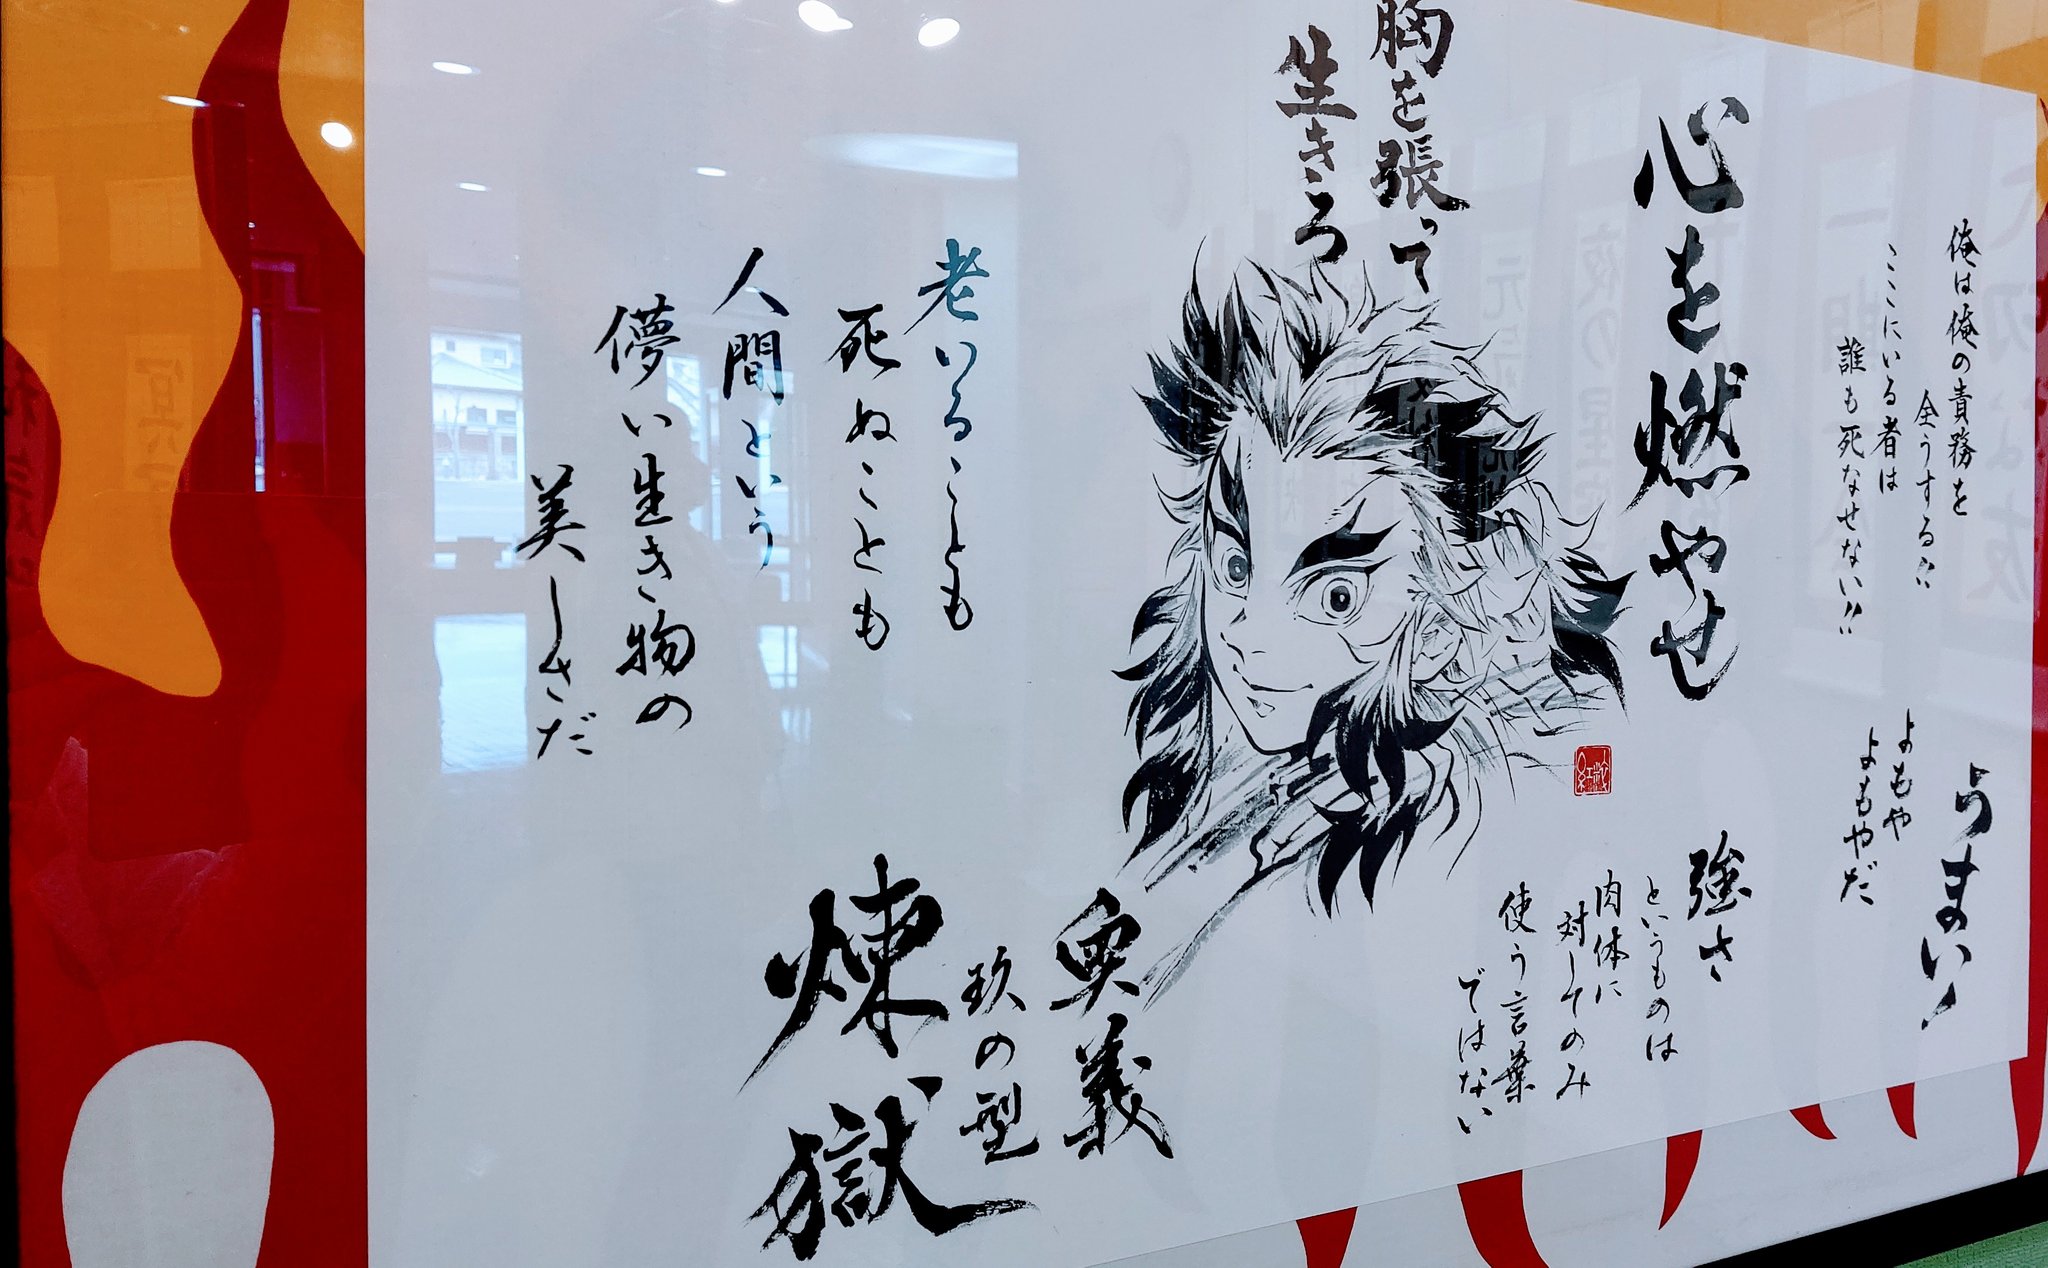 俺は俺の責務を
全うする!!
ここにいる者は
誰も死なせない!!
うまい!
よもや
よもやだ
心を燃やせ
胸を張って
生きろ
強さ
というものは
肉体に
対してのみ
使う言葉
ではない
老いることも
死ぬことも
人間という
儚い生き物の
美しさだ
奥義
玖の型
煉獄